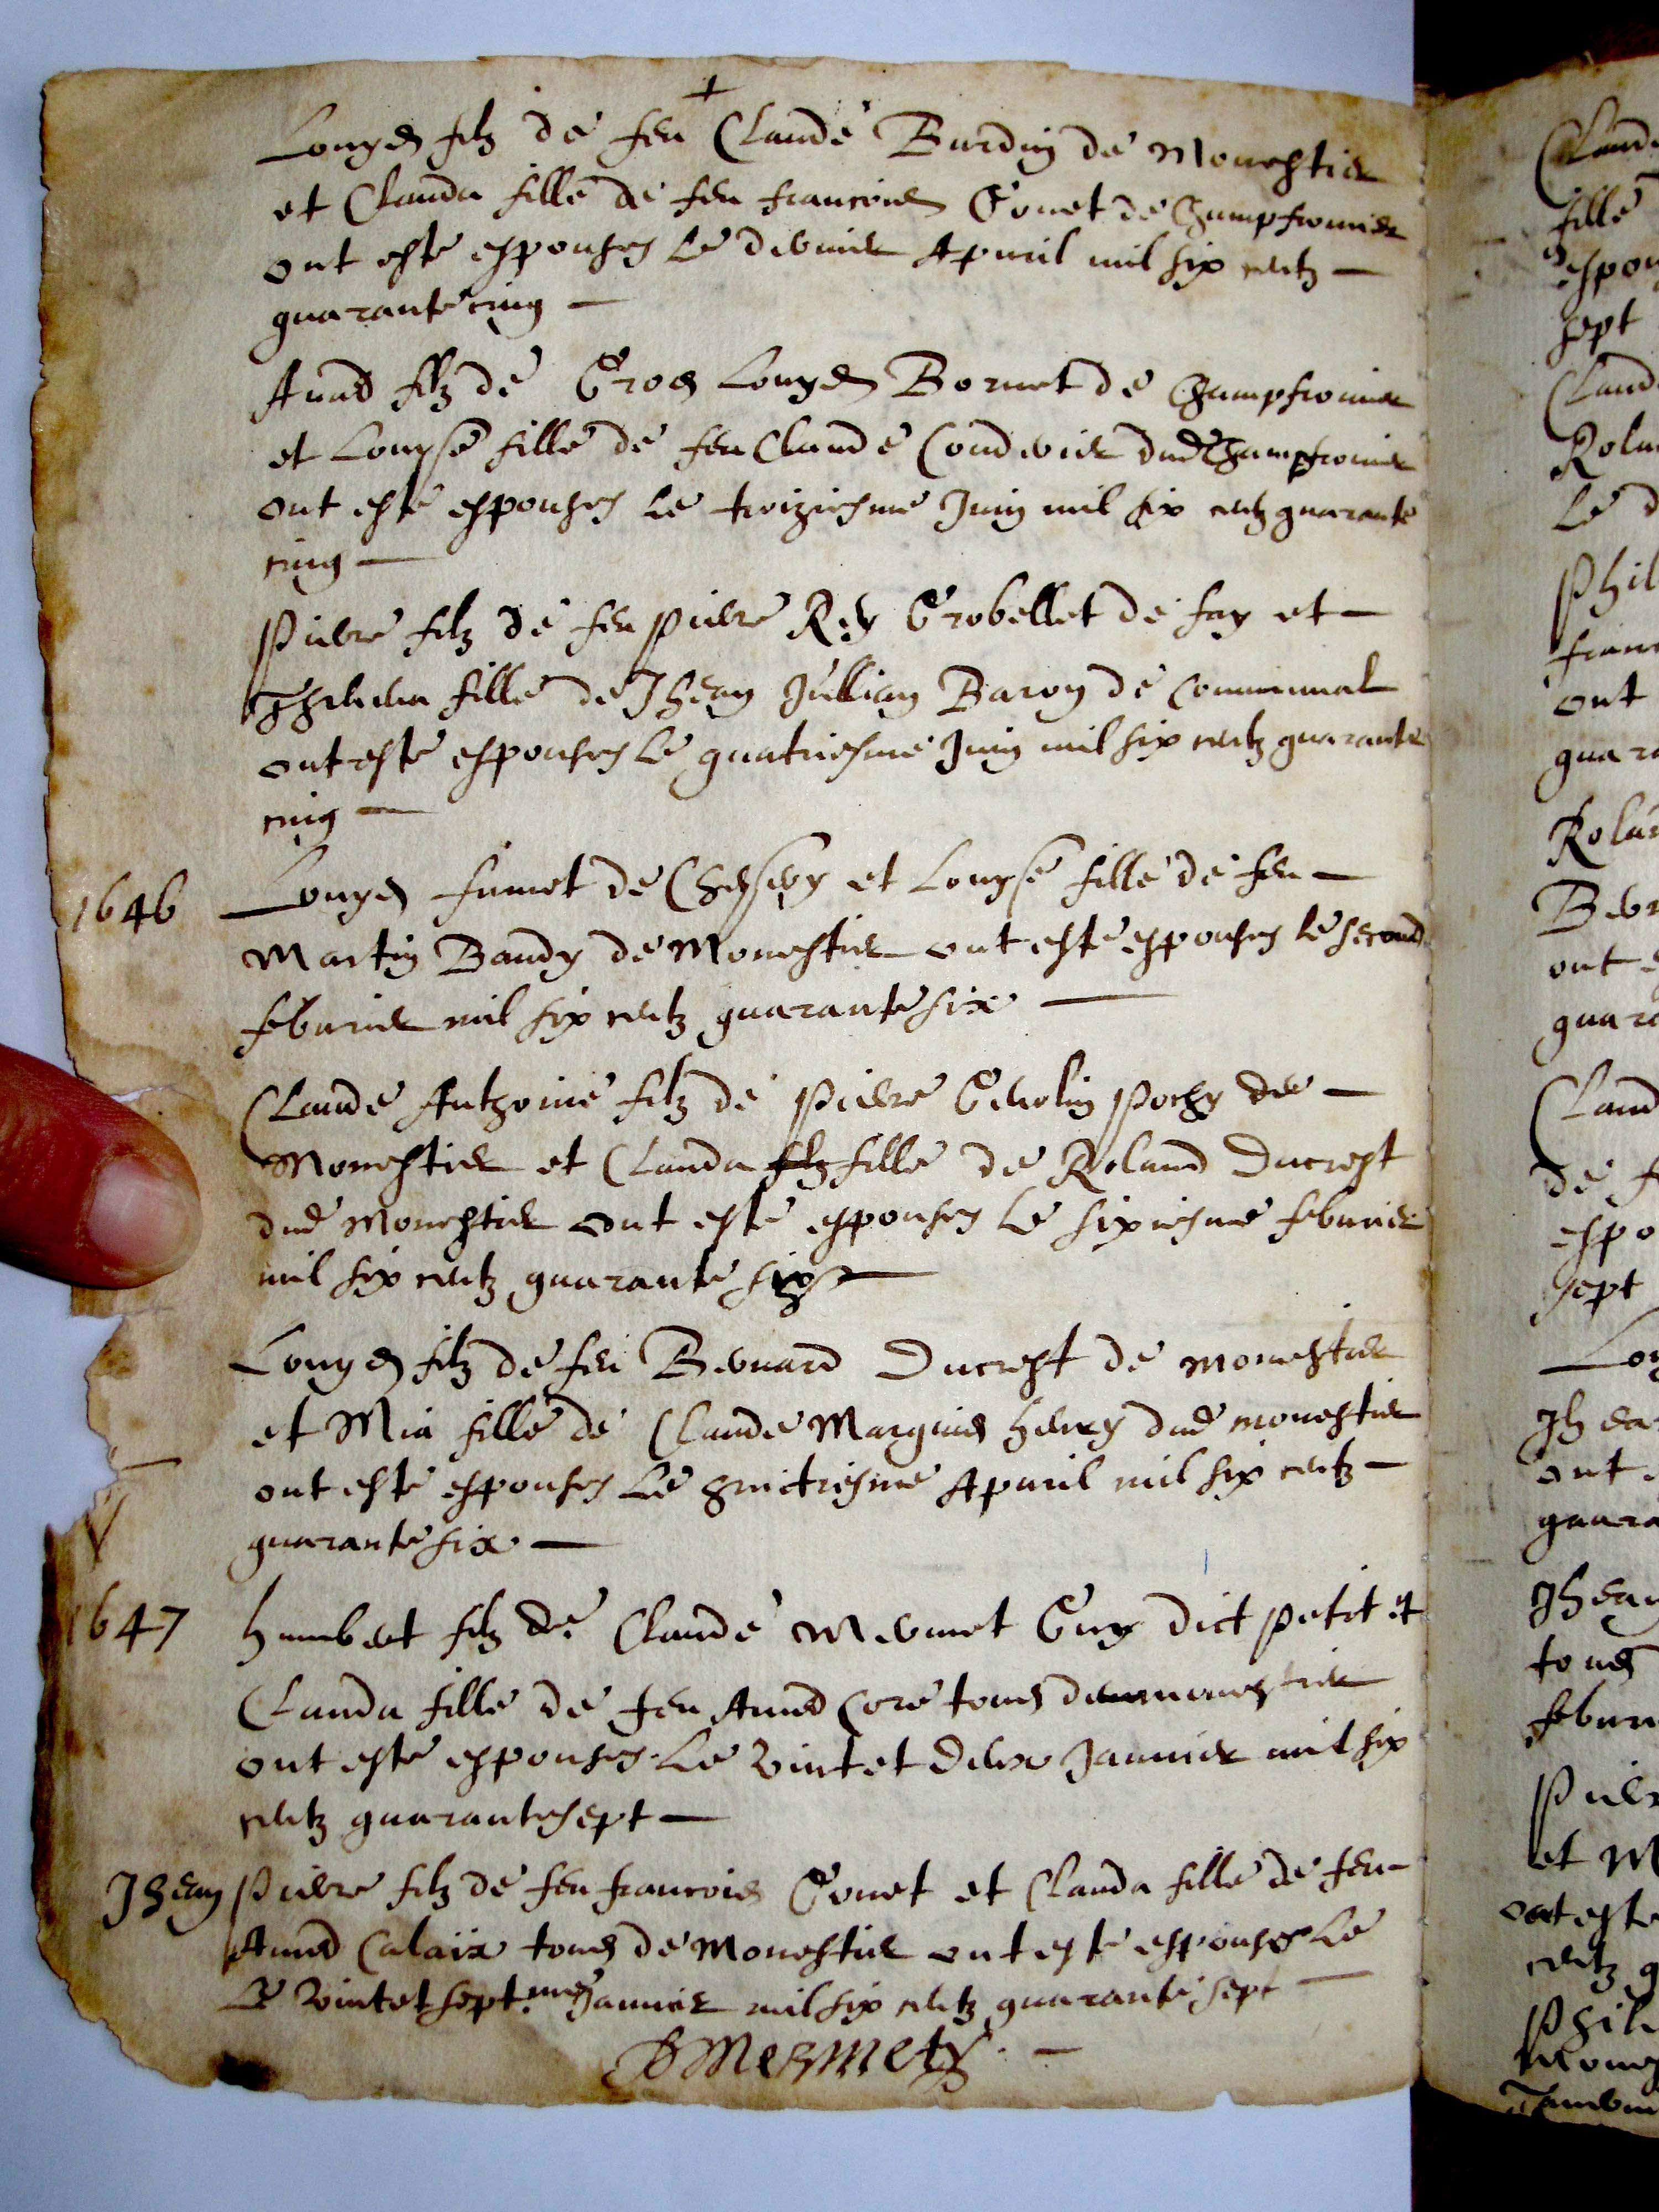 +
Louys filz de feu Claude Burdin de Monestier
et Clauda fille de feu francois Genet de Champfromier
ont este espouses le dernier Apuril mil six centz —
quarante cinq —
Amed filz de Gros Louys Bornet de Champfromier
et Louyse fille de feu Claude Coudurier dud Champfromier
ont este espouses le troiziesme Juin mil six centz quarante
cinq —
Pierre filz de feu pierre Rey Grobellet de fay et —
fille de Jhean Jullian Baron de communal
ont este espouses le quatriesme Juin mil six centz quarante
cinq —
1646
Louys fumet de et Louyse fille de feu —
Martin Baudy de Monestier ont este espouses le second
feburier mil six centz quarante six —
Claude Anthoine filz de pierre Genolin pochy de —
Monestier et Clauda filz fille de Roland Ducrest
dud Monestier ont este espouses le sixiesme feburier
mil six centz quarante six —
Louys filz de feu Bernard Ducrest de monestier
et Mia fille de Claude Marquis henry dud monestier
ont este espouses le huictiesme Apuril mil six centz —
quarante six —
1647
humbert filz de Claude Mermet Guy dict petit et
Clauda fille de feu Amed Core tous de monestier
ont este espouses le vint et deux Januier mil six
centz quarante sept —
Jhean pierre filz de feu francois Genet et Clauda fille de feu —
Amed Calaix tous de Monestier ont este espouses le
le vint et sept.me Januier mil six centz quarante sept —
Mermety. —
Claud
fille
espou
sept
Claud
Rolan
Le d
Phil
franc
ont
quara
Rolan
Ber
ont
quara
Claud
de f
espo
sept
Lou
Jhea
ont
quara
Jhean
tous
febur
Pierr
et M
ont este
centz q
Phili